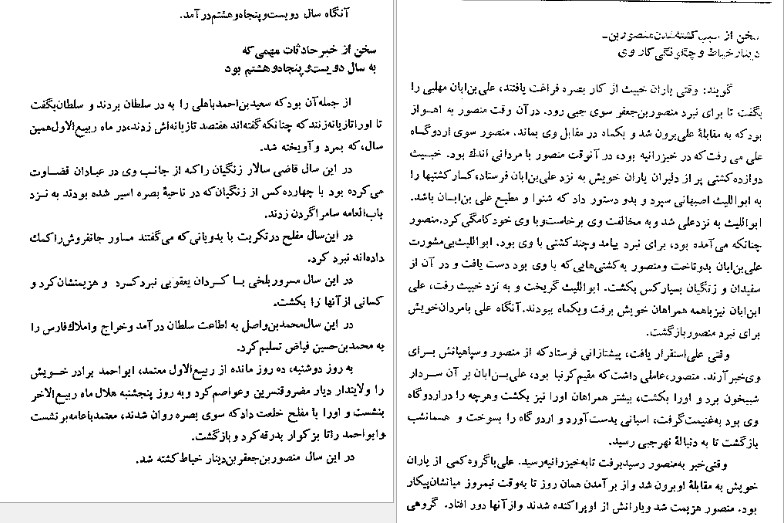 آنگاه سال دویست و پنجاه و هشتم در آمد.
سخن از خبر حادثات مهمی که
به سال دویست و پنجاه و هشتم بود
از جمله آن بود که سعید بن احمد باهلی را به در سلطان بردند و سلطان بگفت
تا او را تازیانه زنند که چنانکه گفته‌اند هفتصد تازیانه‌اش زدند، در ماه ربیع‌الاول همین
سال، که بمرد و آویخته شد.
در این سال قاضی سالار زنگیان را که از جانب وی در عبادان قضاوت
می‌کرده بود با چهارده کس از زنگیان که در ناحیهٔ بصره اسیر شده بودند به نزد
باب‌العامه سامرا گردن زدند.
در این سال مفلح در تکریت با بدویانی که می‌گفتند مساور جانفروش را کمک
داده‌اند نبرد کرد.
در این سال مسرور بلخی با کردان یعقوبی نبرد کرد و هزیمتشان کرد و
کسانی از آنها را بکشت.
در این سال محمد بن واصل به اطاعت سلطان در آمد و خراج و املاک فارس را
به محمد بن حسین فیاض تسلیم کرد.
به روز دوشنبه، ده روز مانده از ربیع‌الاول معتمد، ابواحمد برادر خویش
را ولایتدار دیار مضر و قنسرین و عواصم کرد و به روز پنجشنبه هلال ماه ربیع‌الاخر
بنشست و او را با مفلح خلعت داد که سوی بصره روان شدند، معتمد با عامه بر نشست
و ابواحمد را تا بزکوار بدرقه کرد و بازگشت.
در این سال منصور بن جعفر بن دینار خیاط کشته شد.
سخن از سبب کشته شدن منصور بن-
دینار خیاط و چگونگی کار وی
گویند: وقتی یاران خبیث از کار بصره فراغت یافتند، علی بن ابان مهلبی را
بگفت تا برای نبرد منصور بن جعفر سوی جبی رود. در آن وقت منصور به اهواز
بود که به مقابلهٔ علی برون شد و یکماه در مقابل وی بماند. منصور سوی اردوگاه
علی می‌رفت که در خیزرانیه بود، در آنوقت منصور با مردانی اندک بود. خبیث
دوازده کشتی پر از دلیران یاران خویش به نزد علی بن ابان فرستاد، کار کشتیها را
به ابواللیث اصبهانی سپرد و بدو دستور داد که شنوا و مطیع علی بن ابان باشد.
ابواللیث به نزد علی شد و به مخالفت وی برخاست و با وی خودکامگی کرد. منصور
چنانکه می‌آمده بود، برای نبرد بیامد و چند کشتی با وی بود. ابواللیث بی‌مشورت
علی بن ابان بدو تاخت و منصور به کشتی‌هایی که با وی بود دست یافت و در آن از
سفیدان و زنگیان بسیار کس بکشت. ابواللیث گریخت و به نزد خبیث رفت، علی
ابن ابان نیز با همه همراهان خویش برفت و یکماه ببودند. آنگاه علی با مردان خویش
برای نبرد منصور بازگشت.
وقتی علی استقرار یافت، پیشتازانی فرستاد که از منصور و سپاهیانش برای
وی خبر آرند. منصور، عاملی داشت که مقیم کرنبا بود، علی بن ابان بر آن سردار
شبیخون برد و او را بکشت، بیشتر همراهان او را نیز بکشت و هر چه را در اردوگاه
وی بود به غنیمت گرفت، اسبانی بدست آورد و اردوگاه را بسوخت و همانشب
بازگشت تا به دنبالهٔ نهر جبی رسید.
وقتی خبر به منصور رسید برفت تا به خیزرانیه رسید. علی با گروه کمی از یاران
خویش به مقابلهٔ او برون شد و از بر آمدن همان روز تا به وقت نیمروز میانشان پیکار
بود. منصور هزیمت شد و یارانش از او پراکنده شدند و از آنها دور افتاد. گروهی